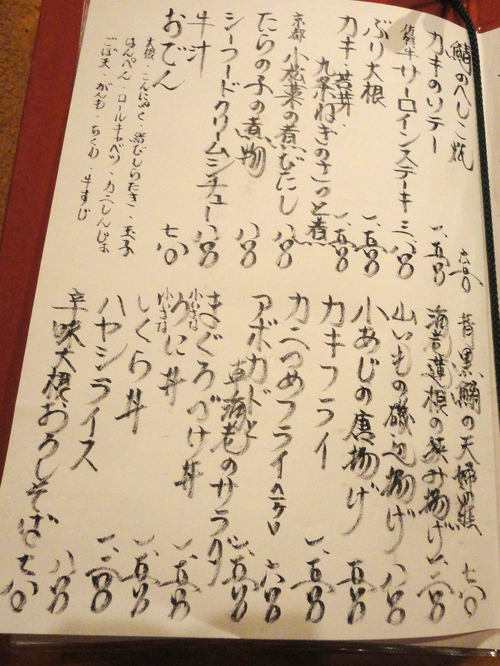 鯖のへしこ焼 六〇〇
カキのソテー 一、五〇〇
佐賀牛サーロインステーキ 三、八〇〇
ぶり大根 一、五〇〇
カキ・若芽
九条ねぎのさっと煮 一、五〇〇
京都 小松菜の煮びたし 八〇〇
たらの子の煮物 八〇〇
シーフードクリームシチュー 八〇〇
牛汁
おでん 七〇〇
大根・こんにゃく・結びしらたき・玉子
はんぺん・ロールキャベツ・カニしんじょ
ごぼ天・がんも・ちくわ・牛すじ
の天婦羅 七〇〇
蓮根の挟み揚げ 一、二〇〇
山いもの磯辺揚げ 八〇〇
小あじの唐揚げ 一、五〇〇
カキフライ 一、五〇〇
カニつめフライ 一ケ 六〇〇
アボカドと
車海老のサラダ 一、五〇〇
まぐろづけ丼 一、五〇〇
小いさな うに丼 一、五〇〇
いくら丼 一、五〇〇
ハヤシライス 一、二〇〇
辛味大根おろしそば 七〇〇